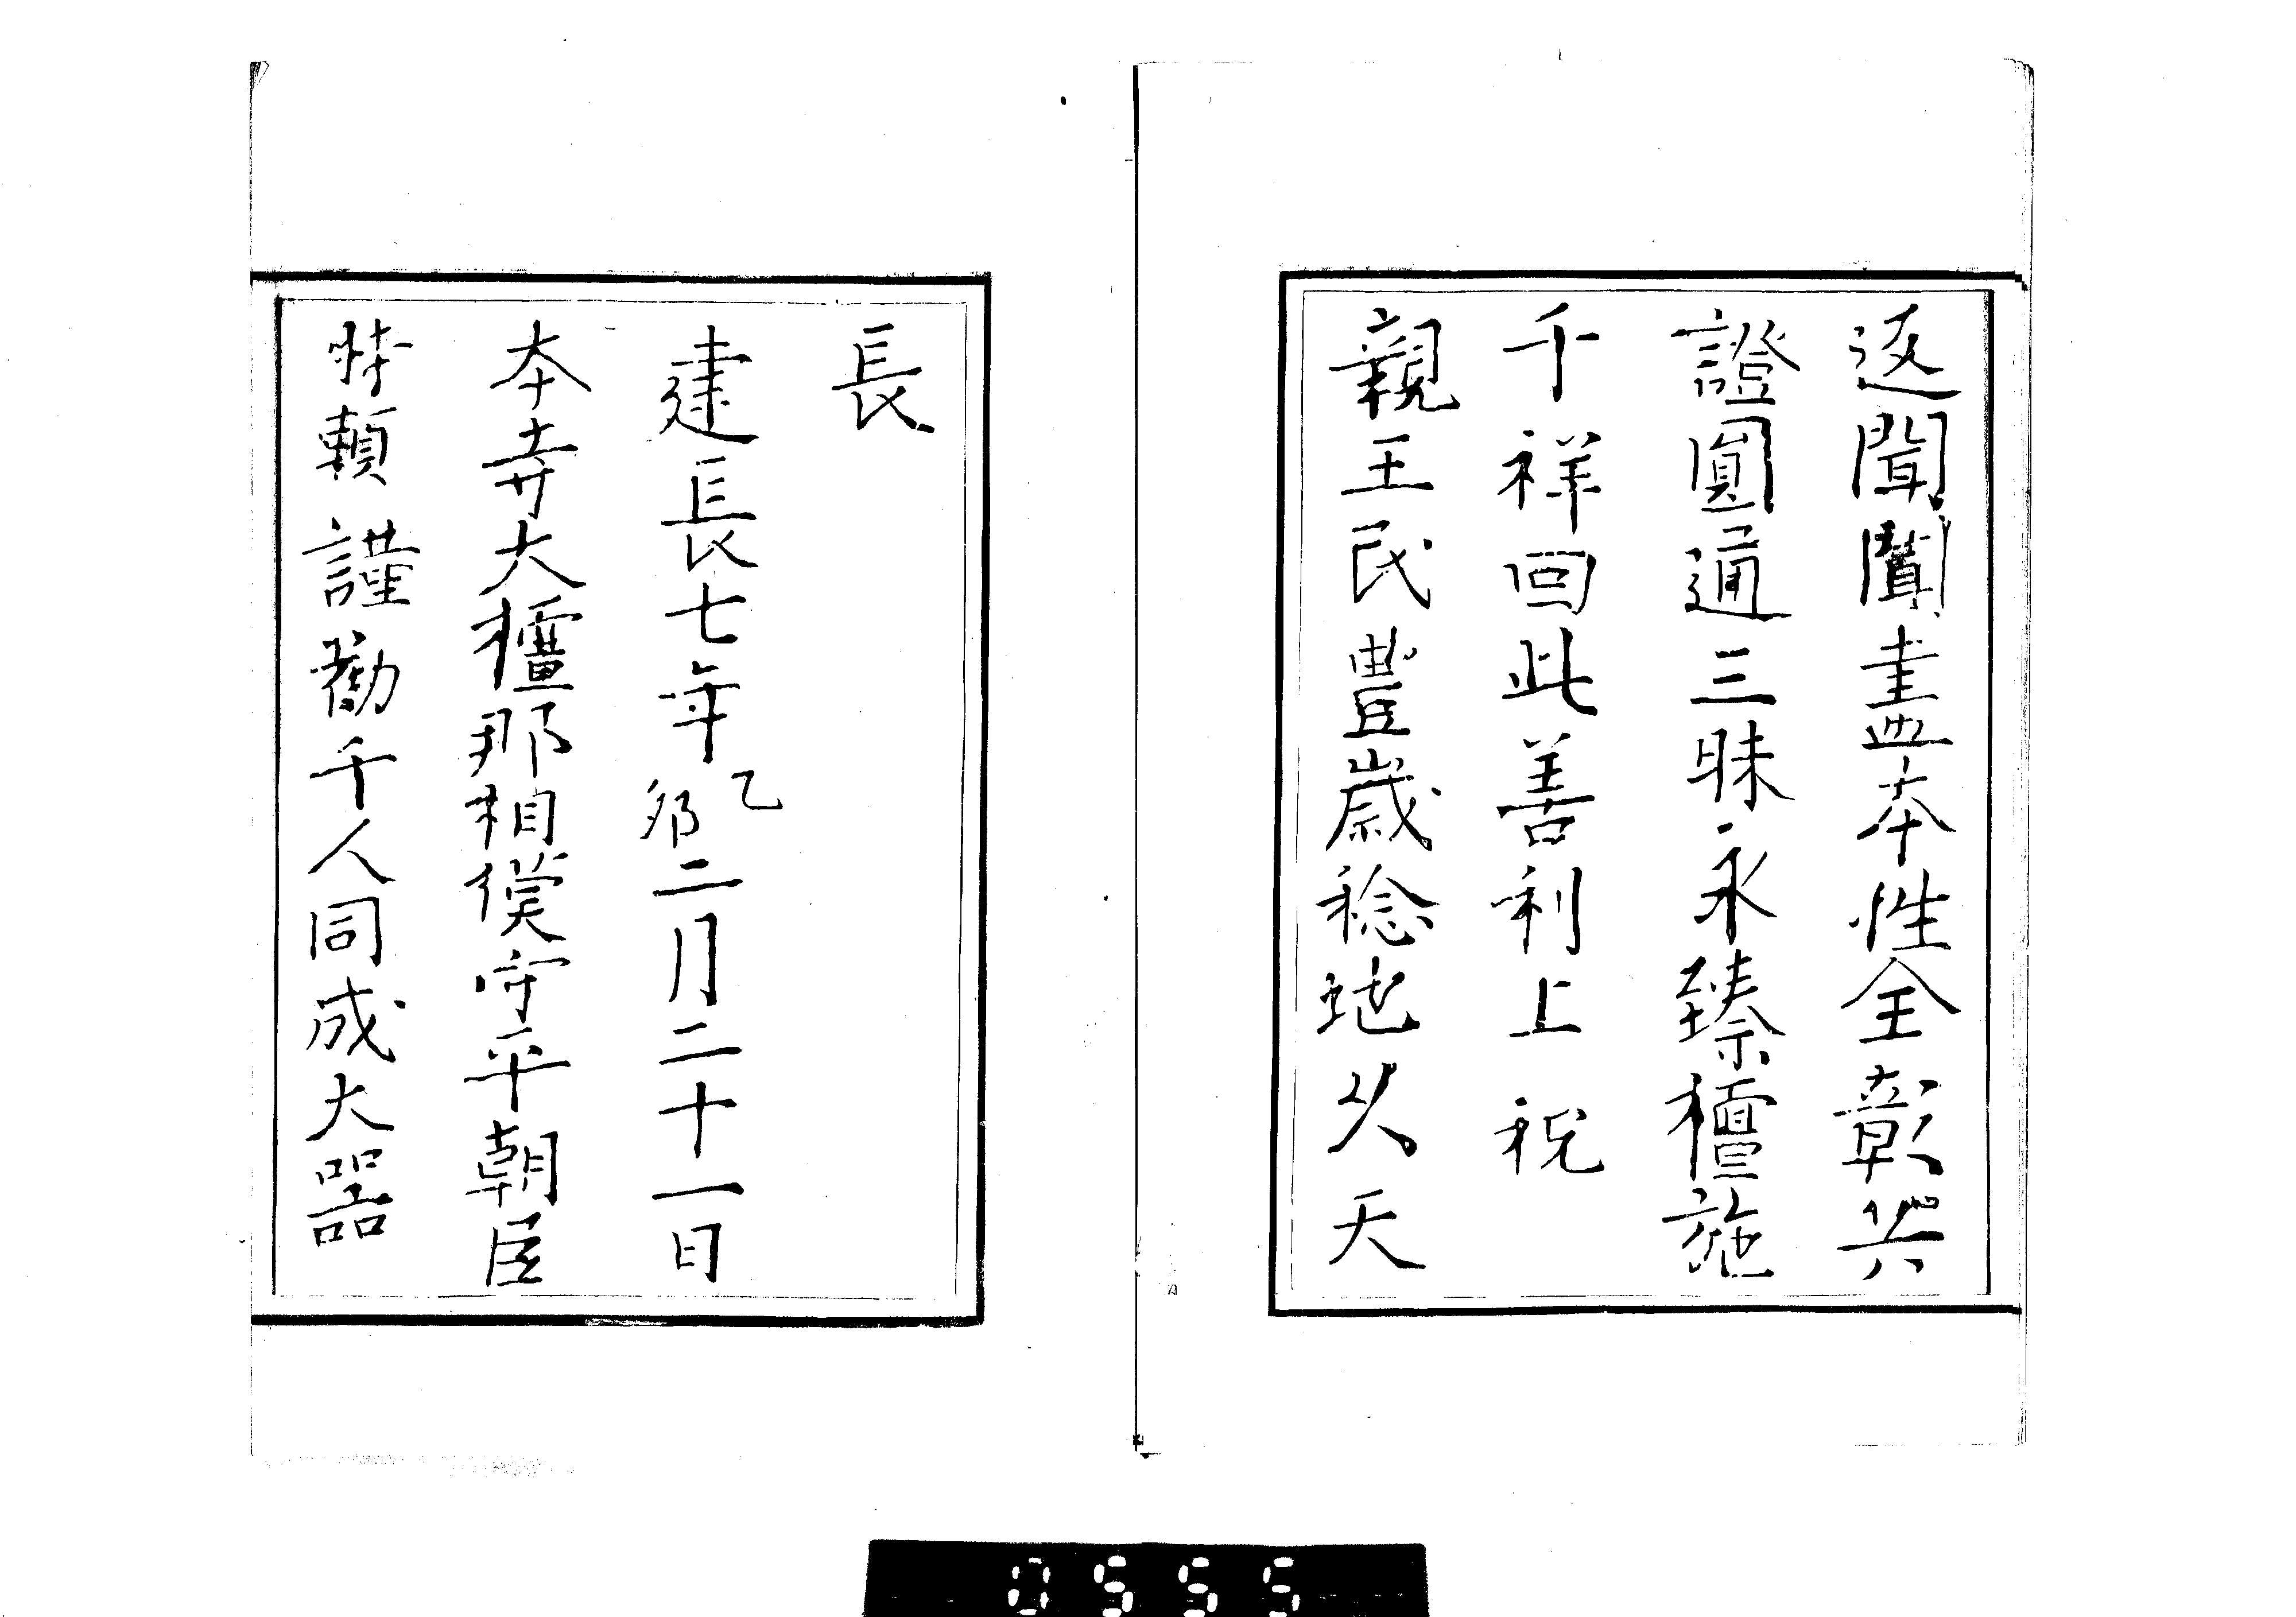 返聞聞盡本性全彰共
證圓通三昧永臻檀施
千祥回此善利上祝
親王民豊歳稔地久天
長
建長七年乙卯二月二十一日
本寺大檀那相模守平朝臣
時頼謹勸千人同成大器
0555